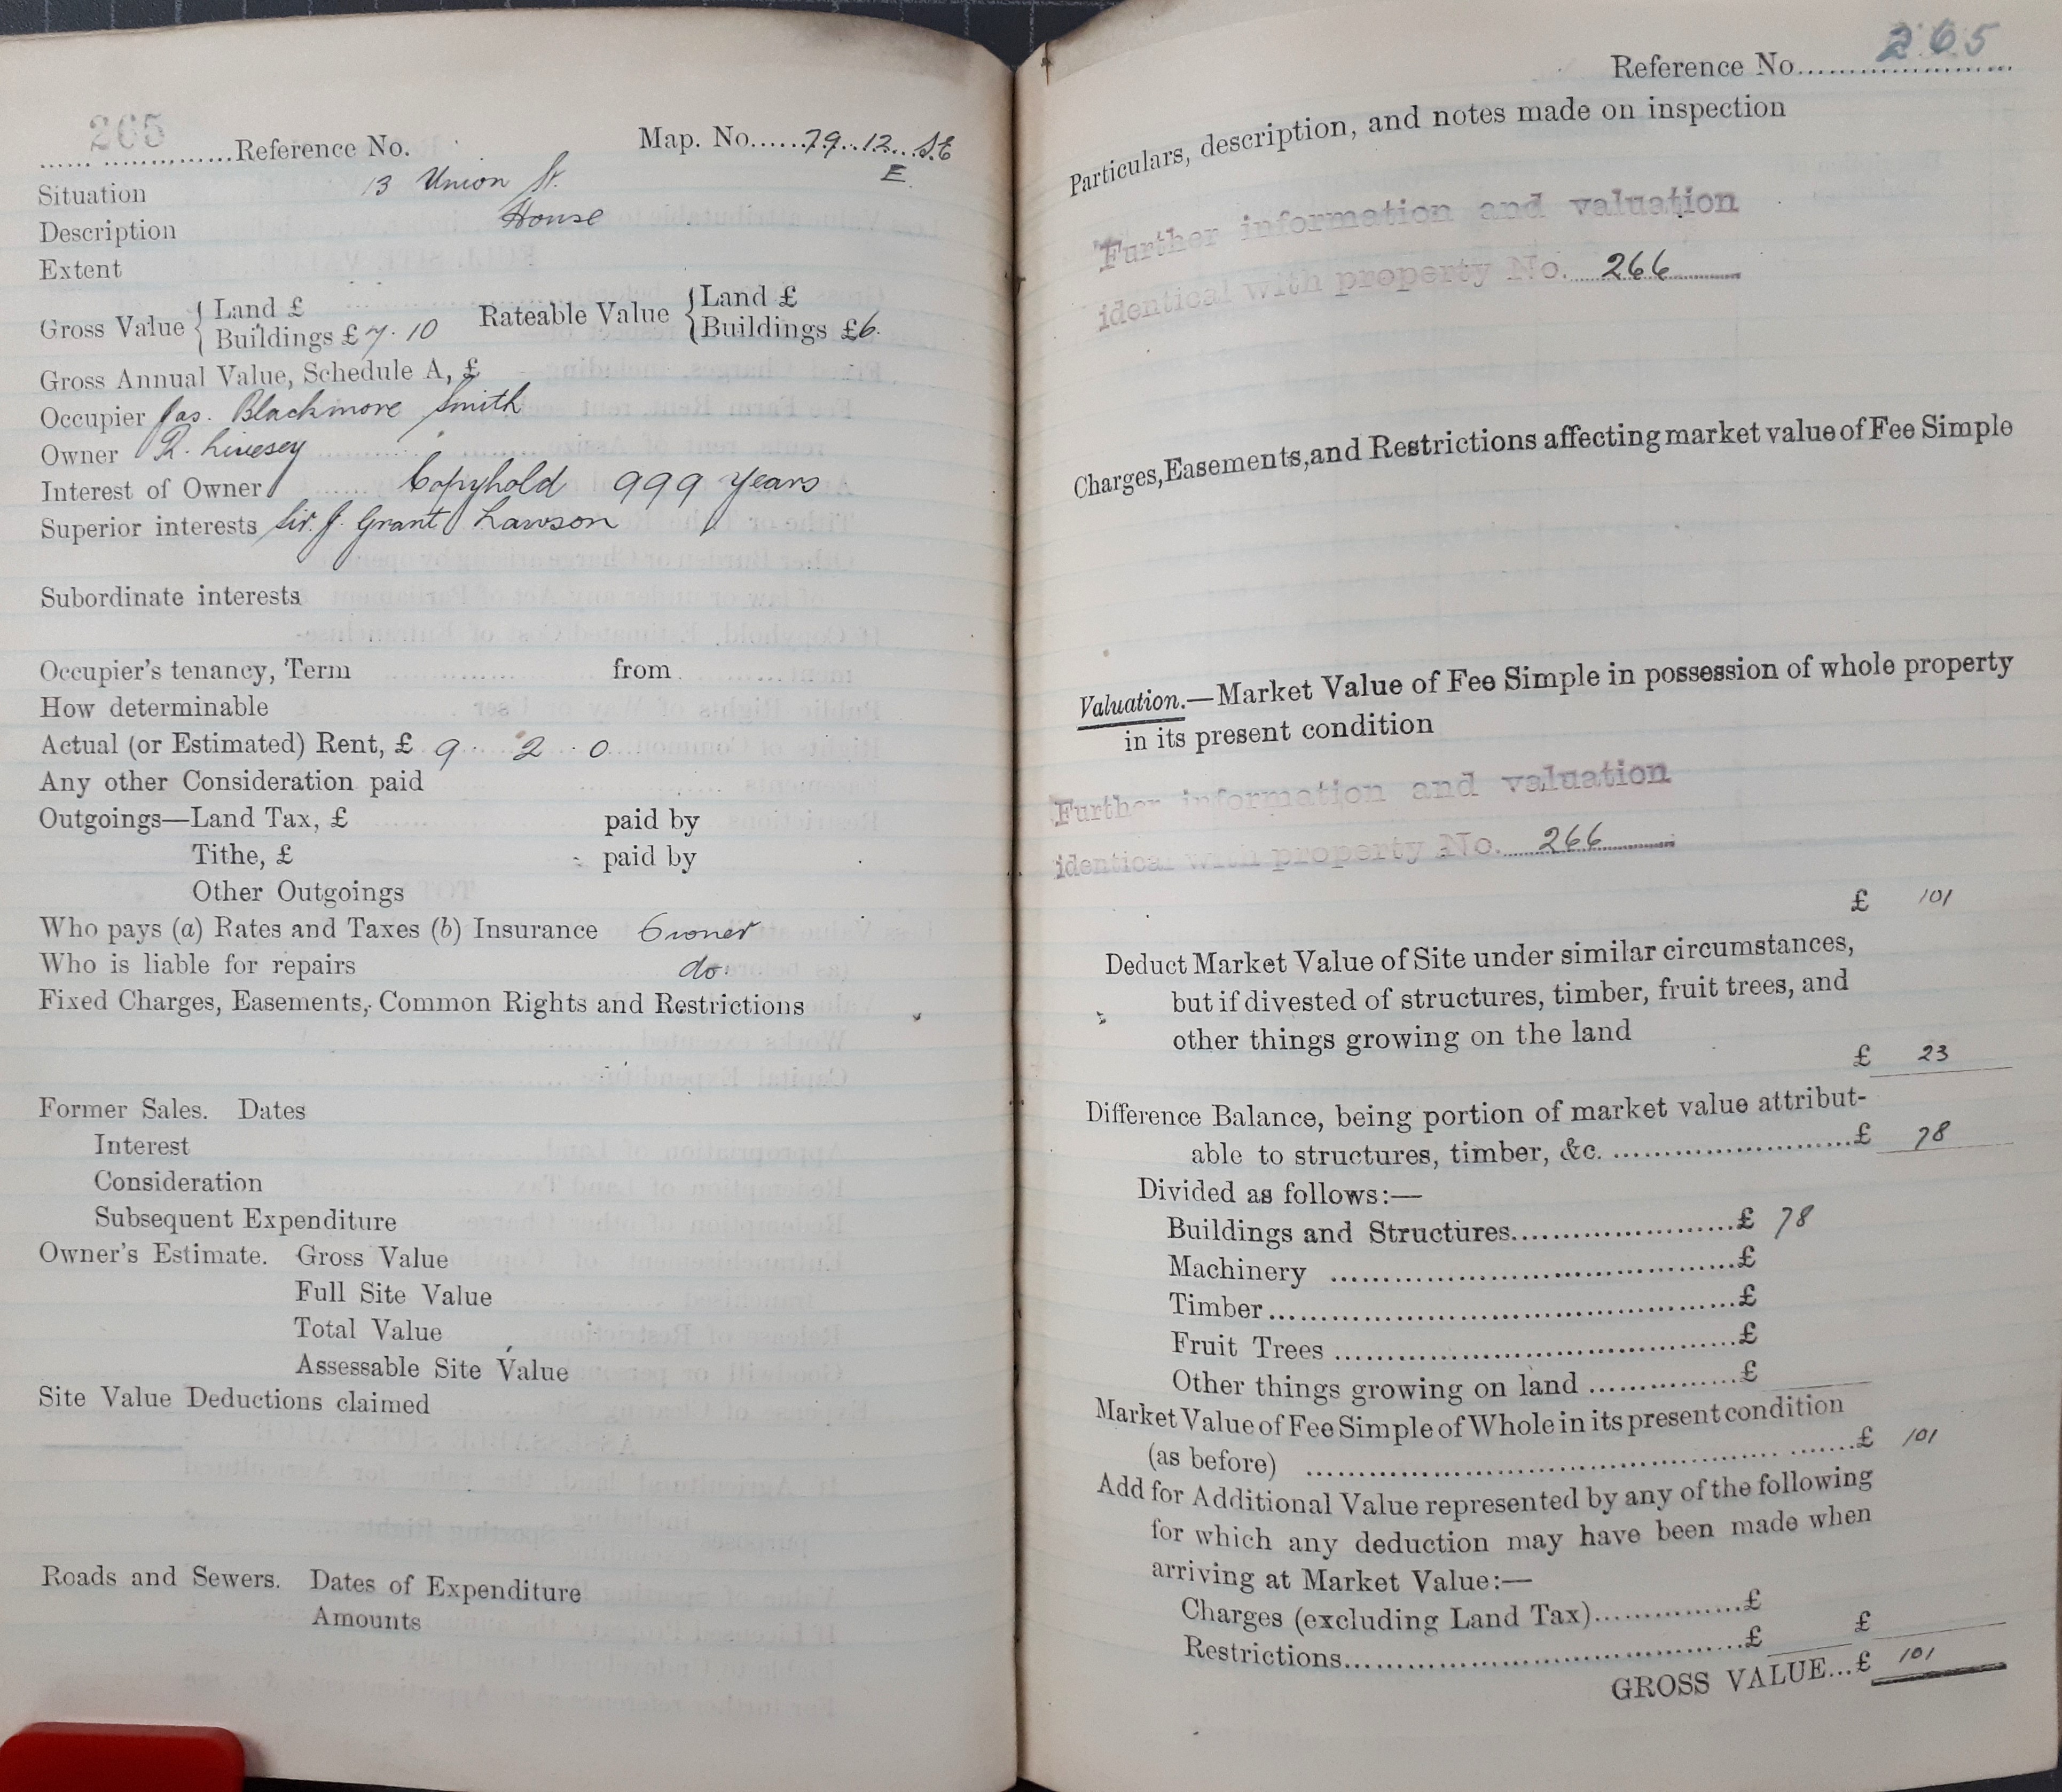 265
Reference No. Map. No. 79.12. S.E
E.
Situation 13 Union St.
Description House
Extent
Gross Value { Land £
Buildings £ 7.10
Rateable Value { Land £
Buildings £6.
Gross Annual Value, Schedule A, £
Occupier Jas. Blackmore Smith
Owner R. Livesey
Interest of Owner Copyhold 999 years
Superior interests Sir. J. Grant Lawson
Subordinate interests
Occupier's tenancy, Term from
How determinable
Actual (or Estimated) Rent, £ 9 . 2 . 0
Any other Consideration paid
Outgoings—Land Tax, £ paid by
Tithe, £ paid by
Other Outgoings
Who pays (a) Rates and Taxes (b) Insurance Owner
Who is liable for repairs do.
Fixed Charges, Easements, Common Rights and Restrictions
Former Sales. Dates
Interest
Consideration
Subsequent Expenditure
Owner's Estimate. Gross Value
Full Site Value
Total Value
Assessable Site Value
Site Value Deductions claimed
Roads and Sewers. Dates of Expenditure
Amounts
Reference No. 265
Particulars, description, and notes made on inspection
Further information and valuation
identical with property No. 266
Charges, Easements, and Restrictions affecting market value of Fee Simple
Valuation.—Market Value of Fee Simple in possession of whole property
in its present condition
Further information and valuation
identical with property No. 266
£ 101
Deduct Market Value of Site under similar circumstances,
but if divested of structures, timber, fruit trees, and
other things growing on the land
£ 23
Difference Balance, being portion of market value attribut-
able to structures, timber, &c. £ 78
Divided as follows:—
Buildings and Structures £ 78
Machinery £
Timber £
Fruit Trees £
Other things growing on land £
Market Value of Fee Simple of Whole in its present condition
(as before) £ 101
Add for Additional Value represented by any of the following
for which any deduction may have been made when
arriving at Market Value:—
Charges (excluding Land Tax) £
Restrictions £ £
GROSS VALUE...£ 101